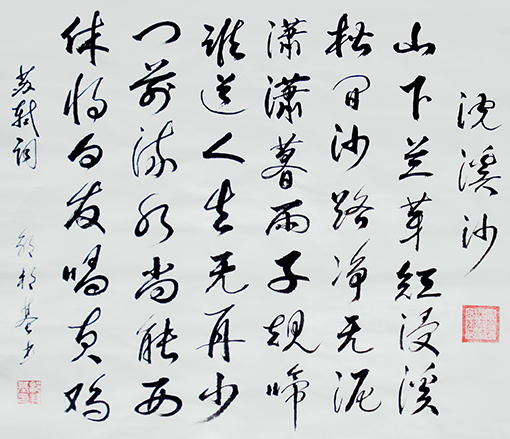 浣溪沙
山下兰芽短浸溪
松间沙路净无泥
潇潇暮雨子规啼
谁道人生无再少
门前流水尚能西
休将白发唱黄鸡
苏轼词